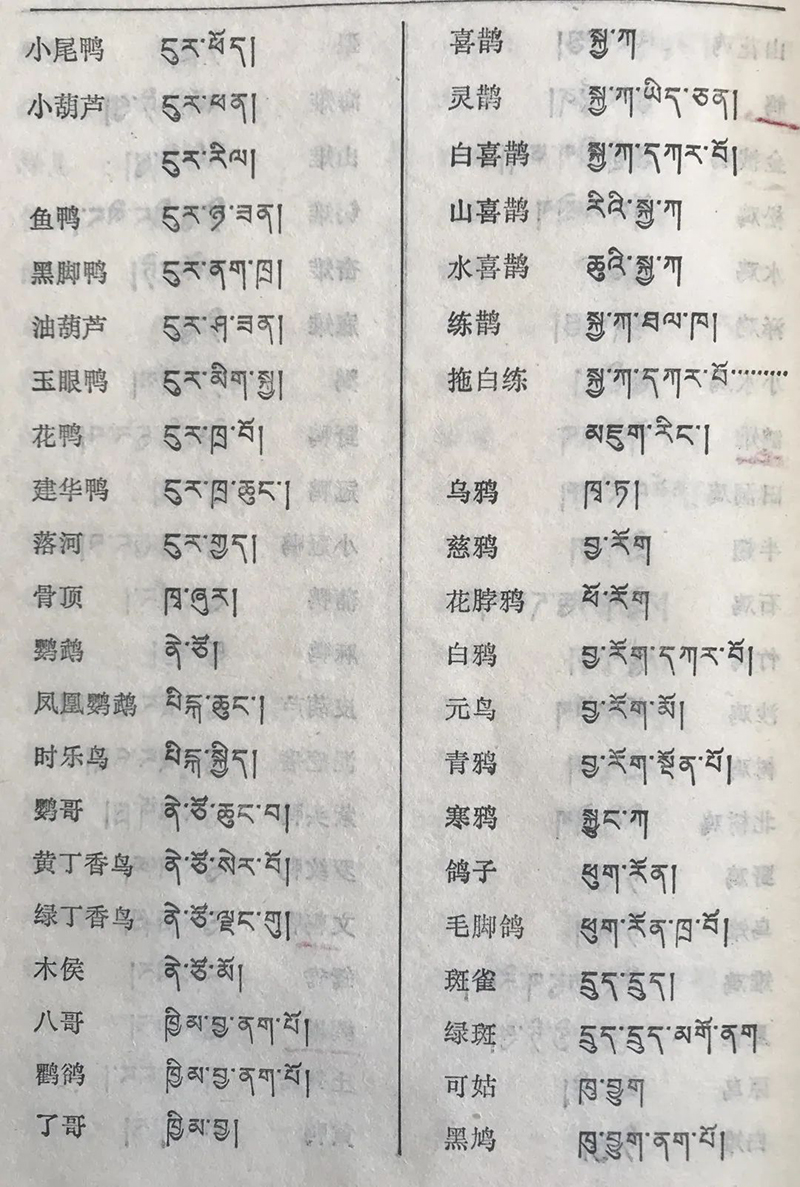 小尾鸭 ངུར་ཕོད།
小葫芦 ངུར་ཕན།
ངུར་རིལ།
鱼鸭 ངུར་ཉ་ཟན།
黑脚鸭 ངུར་ནག་ཁྲ།
油葫芦 ངུར་ཤ་ཟན།
玉眼鸭 ངུར་མིག་སྐྱ།
花鸭 ངུར་ཁྲ་བོ།
建华鸭 ངུར་ཁྲ་ཆུང་།
落河 ངུར་ཀྱད།
骨顶 ཁྭ་ཞུར།
鹦鹉 ནེ་ཙོ།
凤凰鹦鹉 པིཏྐ་ཆུང་།
时乐鸟 པིཏྐ་སྐྱིད།
鹦哥 ནེ་ཙོ་ཆུང་བ།
黄丁香鸟 ནེ་ཙོ་སེར་པོ།
绿丁香鸟 ནེ་ཙོ་ལྗང་གུ།
木侯 ནེ་ཙོ་མོ།
八哥 ཁྱིམ་བྱ་ནག་པོ།
鹳鹆 ཁྱིམ་བྱ་ནག་པོ།
了哥 ཁྱིམ་བྱ།
喜鹊 སྐྱ་ཀ
灵鹊 སྐྱ་ཀ་ཡིད་ཅན།
白喜鹊 སྐྱ་ཀ་དཀར་པོ།
山喜鹊 རིའི་སྐྱ་ཀ
水喜鹊 ཆུའི་སྐྱ་ཀ
练鹊 སྐྱ་ཀ་ཐལ་ཁ།
拖白练 སྐྱ་ཀ་དཀར་པོ………
མཇུག་རིང་།
乌鸦 ཁྭ་ཏ།
慈鸦 བྱ་རོག
花脖鸦 ཕོ་རོག
白鸦 བྱ་རོག་དཀར་པོ།
元鸟 བྱ་རོག་མོ།
青鸦 བྱ་རོག་སྔོན་པོ།
寒鸦 སྐྱུང་ཀ
鸽子 ཕུག་རོན།
毛脚鸽 ཕུག་རོན་ཁྲ་བོ།
斑雀 དུད་དུད།
绿斑 དུད་དུད་མགོ་ནག
可姑 ཁུ་བྱུག
黑鸠 ཁུ་བྱུག་ནག་པོ།